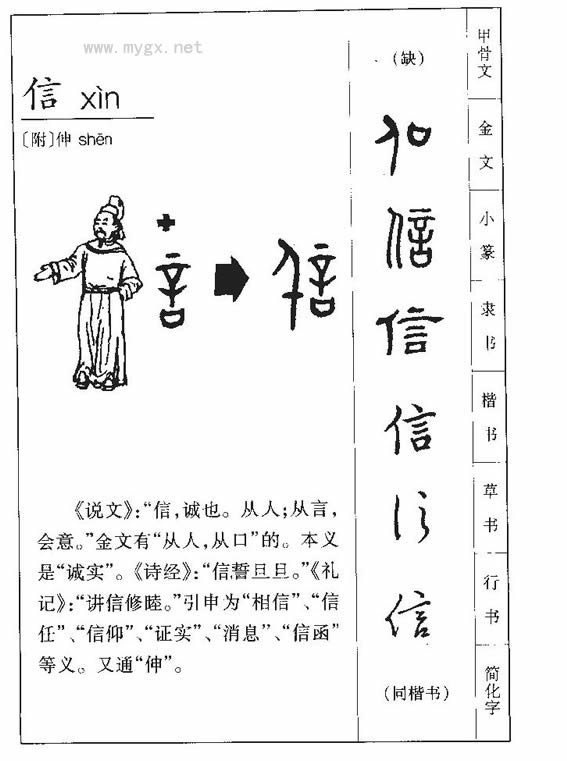 www.mygx.net
信 xìn
〔附〕伸 shēn
《说文》：“信，诚也。从人；从言，
会意。”金文有“从人，从口”的。本义
是“诚实”。《诗经》：“信誓旦旦。”《礼
记》：“讲信修睦。”引申为“相信”、“信
任”、“信仰”、“证实”、“消息”、“信函”
等义。又通“伸”。
（缺）
甲骨文
信
金文
信
小篆
信
隶书
信
楷书
信
草书
信
行书
（同楷书）
简化字